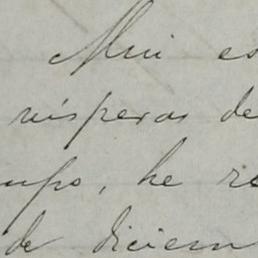 Mui es
vísperas de
upo, he re
de diciem